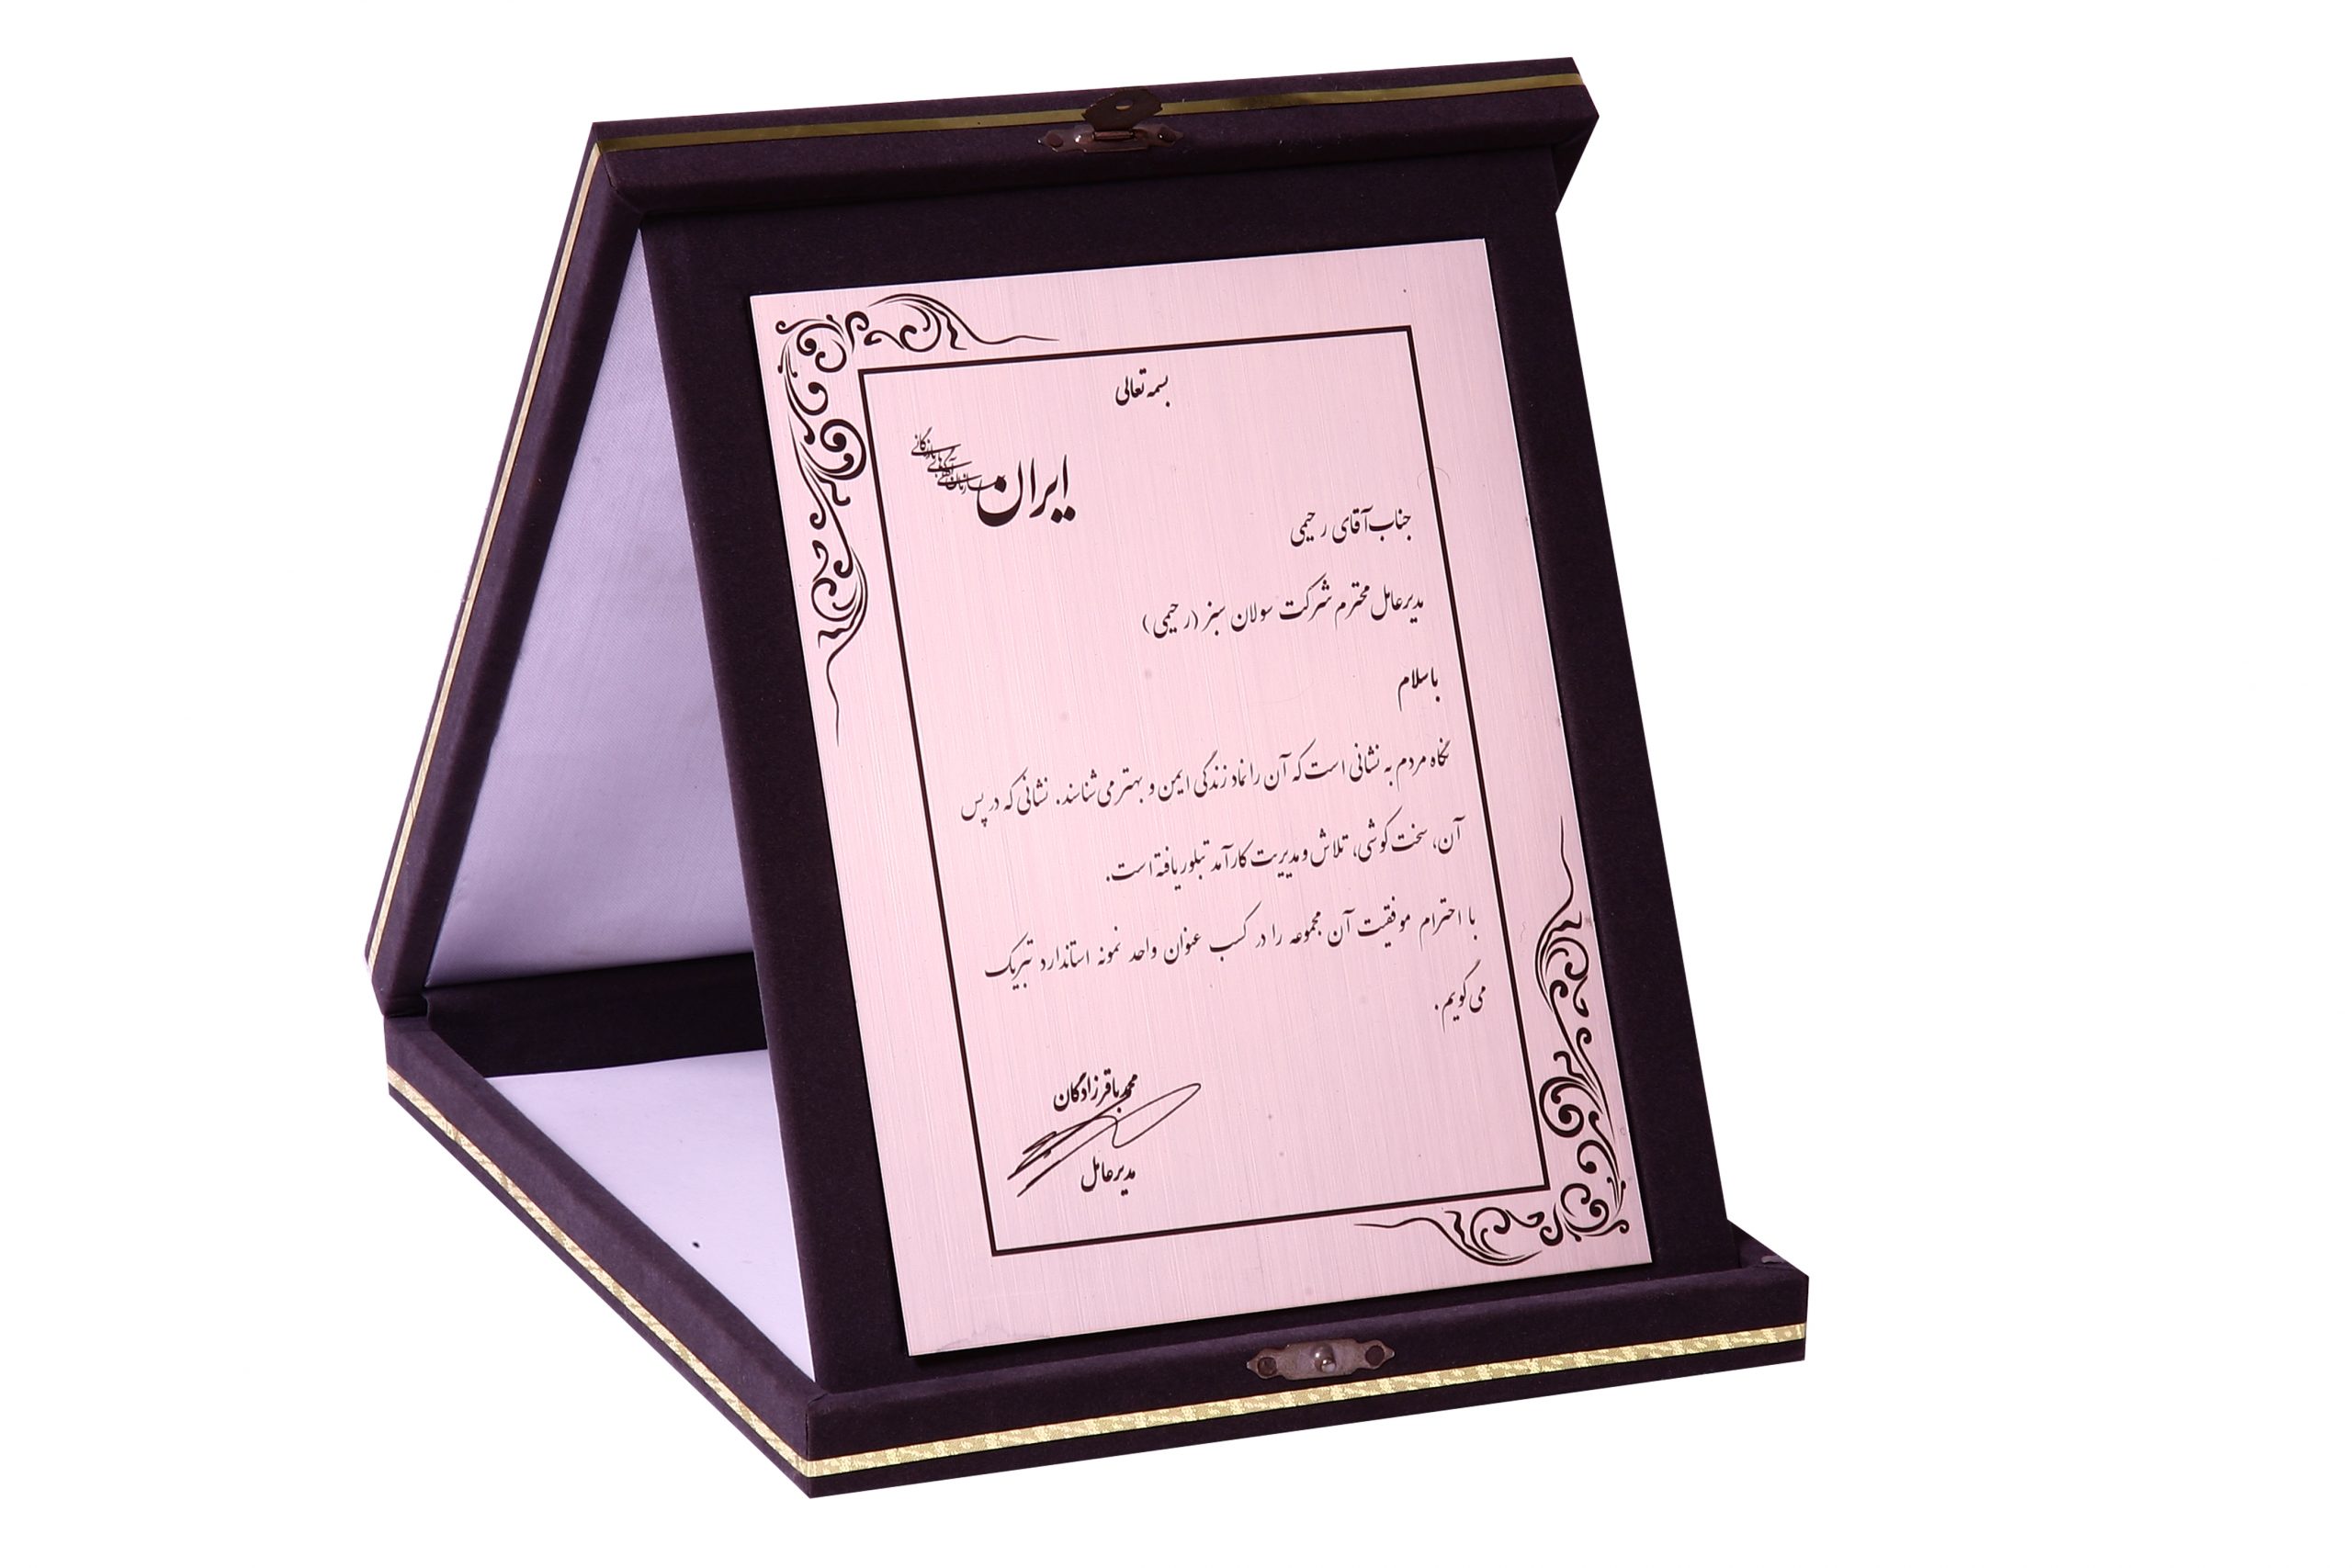 بسمه تعالی
ایران
سازمان آگهی های بازرگانی
جناب آقای رحیمی
مدیرعامل محترم شرکت سولان سبز (رحیمی)
باسلام
نگاه مردم به نشانی است که آن را نماد زندگی ایمن و بهتر می شناسند. نشانی که در پس
آن، سخت کوشی، تلاش و مدیریت کارآمد تبلور یافته است.
با احترام موفقیت آن مجموعه را در کسب عنوان واحد نمونه استاندارد تبریک
می گویم.
محمدباقرزادگان
مدیرعامل